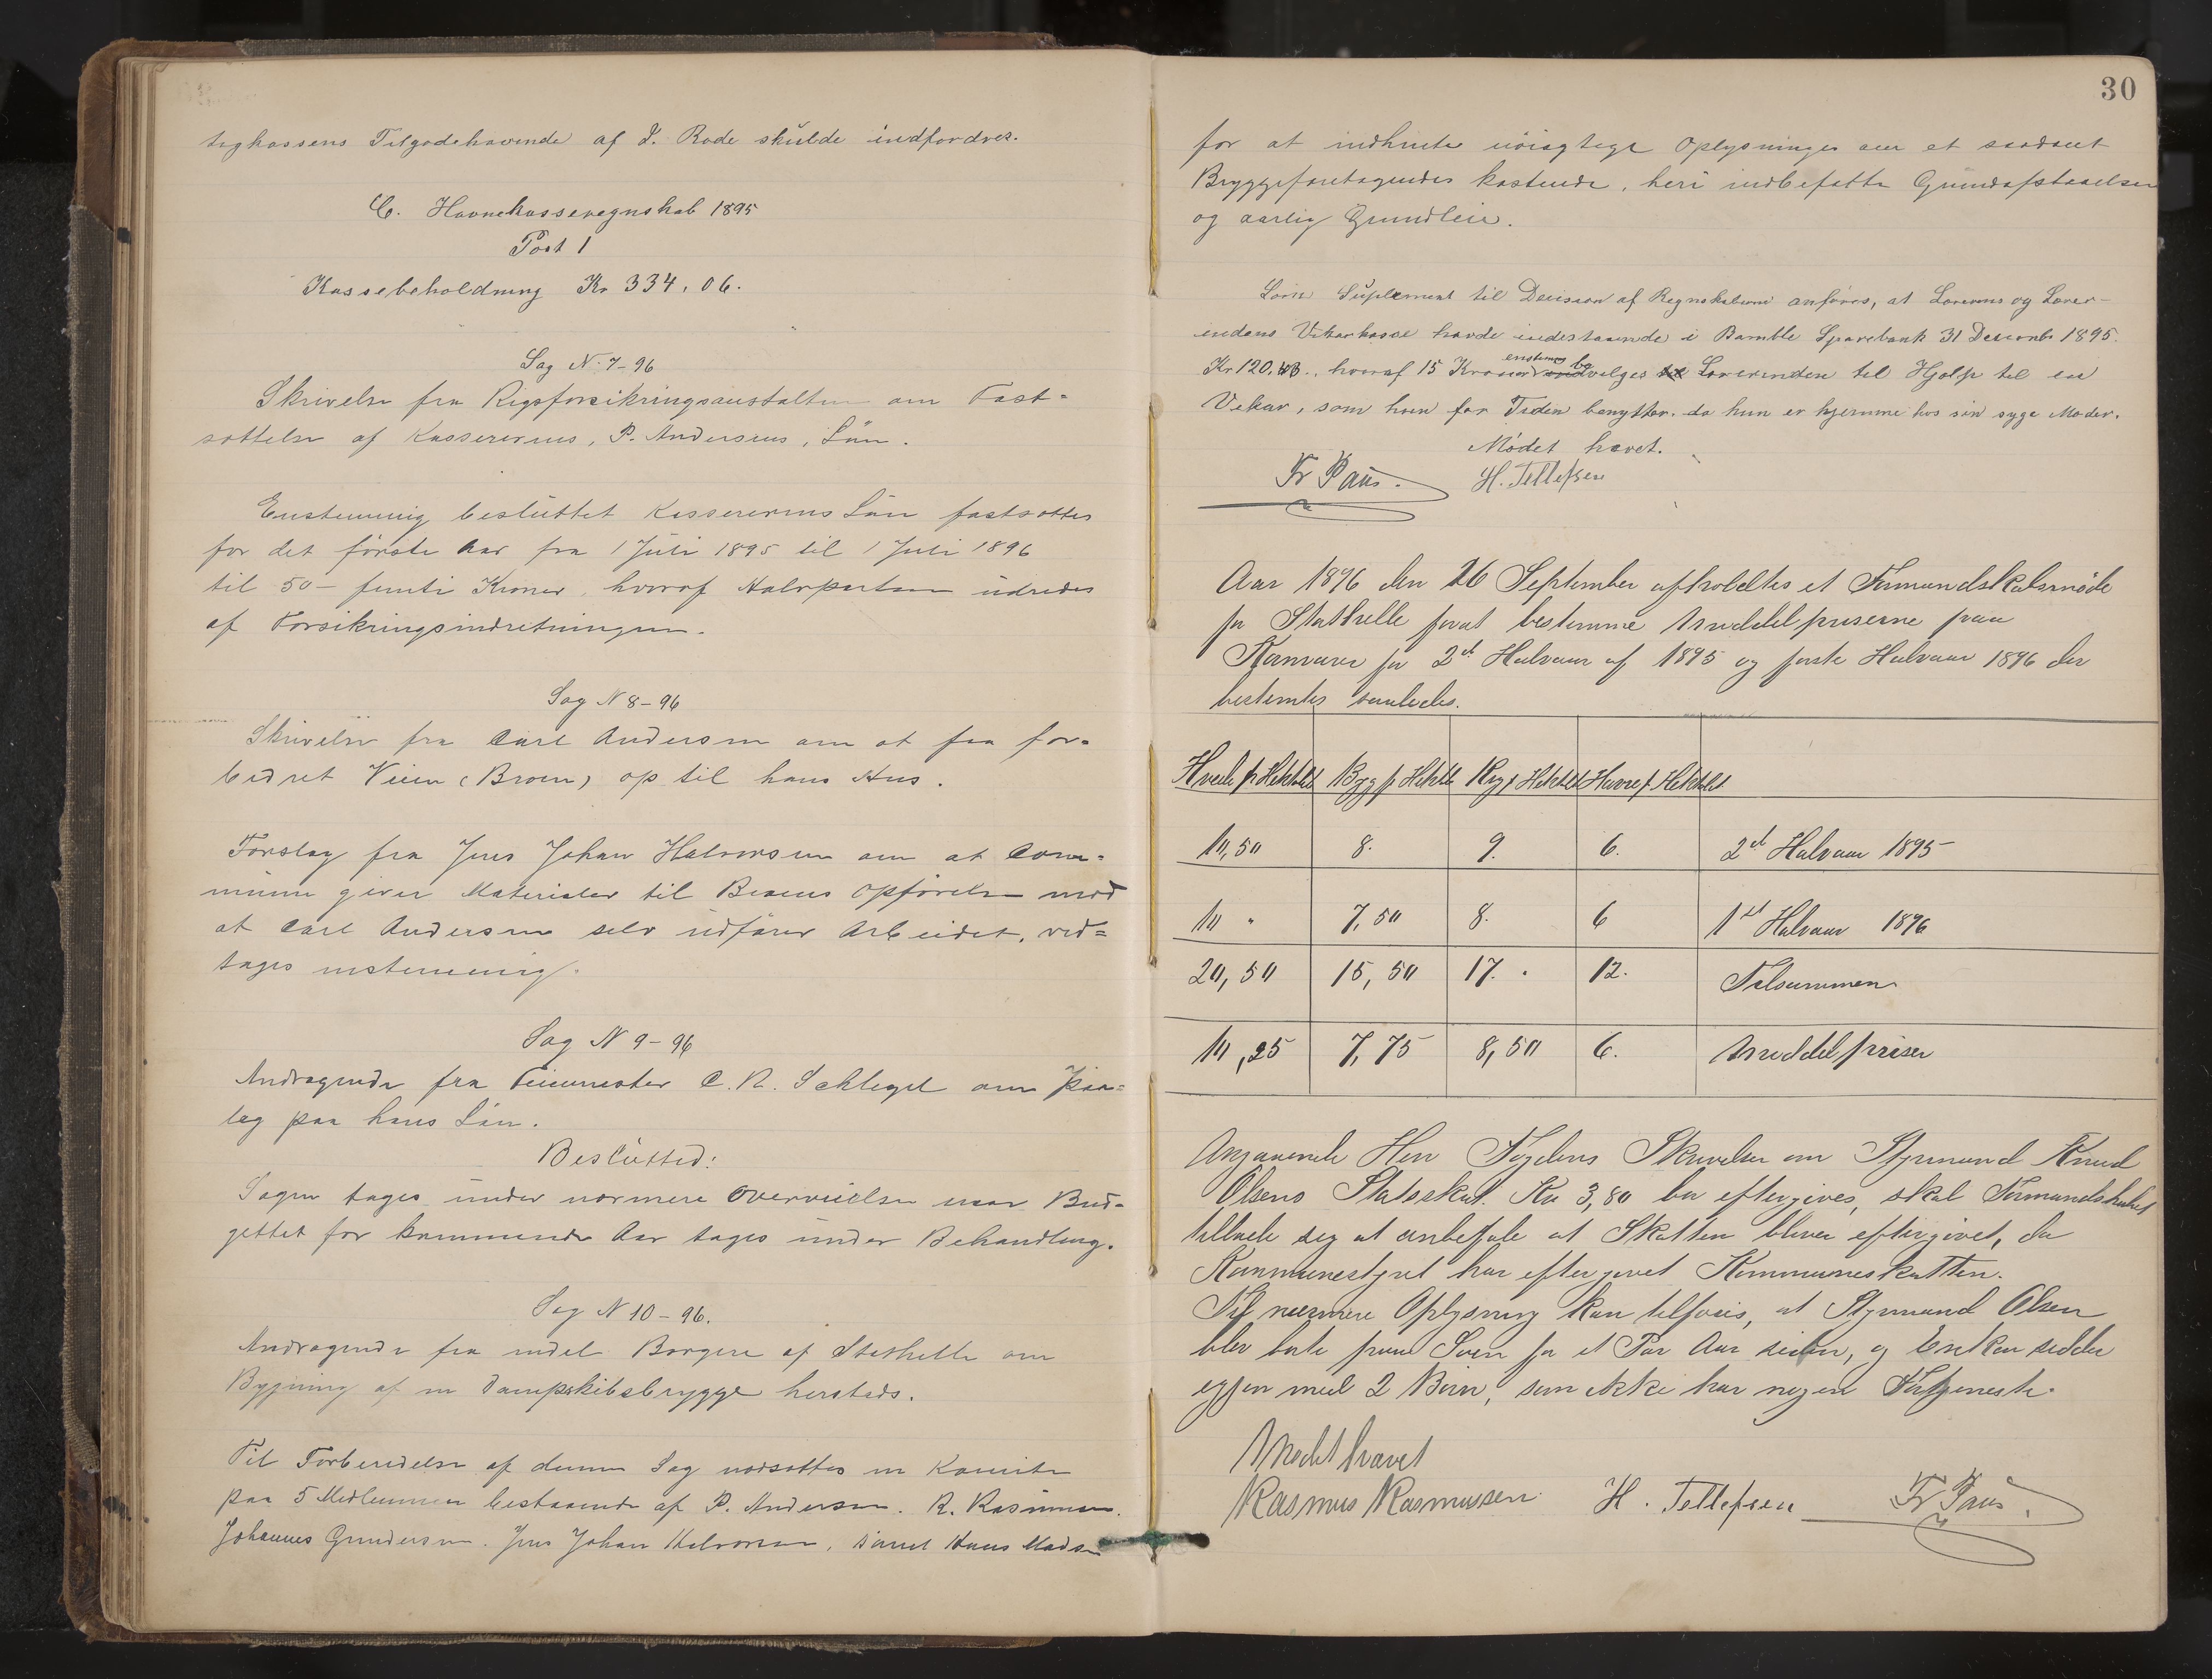 tighassens Tilgodehavende af F. Rode skulde indfordres.
C. Havnekasseregnskab 1895
Post 1
Kassebeholdning Kr 334,06.
Sag N. 7-96
Skrivelse fra Rigsforsikringsanstalten om Fast-
sættelse af Kassererens, P. Andersens, Løn.
Enstemmig besluttet Kassererens Løn fastsættes
for det første Aar fra 1 Juli 1895 til 1 Juli 1896
til 50 - femti Kroner, hvoraf Halvparten udredes
af Forsikringsindretningen.
Sag N 8-96
Skrivelse fra Carl Andersen om at faa for-
bedret Veien (Broen) op til hans Hus.
Forslag fra Jens Johan Halvorsen om at Com-
munen giver Materialer til Broens Opførelse mod
at Carl Andersen selv udfører Arbeidet, ved-
tages enstemmig.
Sag N 9-96
Andragende fra Feiermester C. N. Schlegel om Paa-
læg paa hans Løn.
Beslutted:
Sagen tages under nærmere Overveielse naar Bud-
gettet for kommende Aar tages under Behandling.
Sag N 10-96.
Andragende fra endel Borgere af Stathelle om
Bygning af en Dampskibsbrygge hersteds.
Til Forberedelse af denne Sag nedsættes en Komite
paa 5 Medlemmer bestaaende af P. Andersen. R. Rasmussen.
Johannes Gundersen. Jens Johan Halvorsen, samt Hans Madsen
30
for at indhente nöiagtige Oplysninger om et saadant
Bryggeforetagendes kostende, heri indbefatte Grundafstaaelsen
og aarlig Grundleie.
Som Suplement til Decision af Regnskaberne anføres, at Lærerens og Lærer-
indens Vikarkasse havde indestaaende i Bamble Sparebank 31 Decemb. 1895.
Kr 120, hvoraf 15 Kroner enstemmig bevilges Lærerinden til Hjælp til en
Vikar, som hun for Tiden benytter, da hun er hjemme hos sin syge Moder.
Mødet hævet.
Fr Paus. H. Tellefsen
Aar 1896 den 26 September afholdtes et Formandskabsmøde
for Stathelle forat bestemme Middelpriserne paa
Kornvarer for 2det Halvaar af 1895 og første Halvaar 1896 der
bestemtes saaledes.
Hvede pr Hektolit Byg pr Hektolt Rug pr Hektolt Havre pr. Hektolit
10,50 8. 9. 6. 2det Halvaar 1895
10 " 7,50 8. 6 1ste Halvaar 1896
20,50 15,50 17. " 12. Talsummen
10,25 7,75 8,50 6. Middelpriser
Angaaende Herr Fogdens Skrivelse om Styrmand Knud
Olsens Statsskat Kr 3,80 bør eftergives, skal Formandskabet
tillade sig at anbefale at Skatten bliver eftergivet, da
Kommunestyret har eftergivet Kommuneskatten.
Til nærmere Oplysning kan tilføies, at Styrmand Olsen
blev borte paa Søen for et Par Aar siden, og Enken sidder
igjen med 2 Børn, som ikke har nogen Fortjeneste.
Mødet hævet
Rasmus Rasmussen H. Tellefsen Fr Paus.